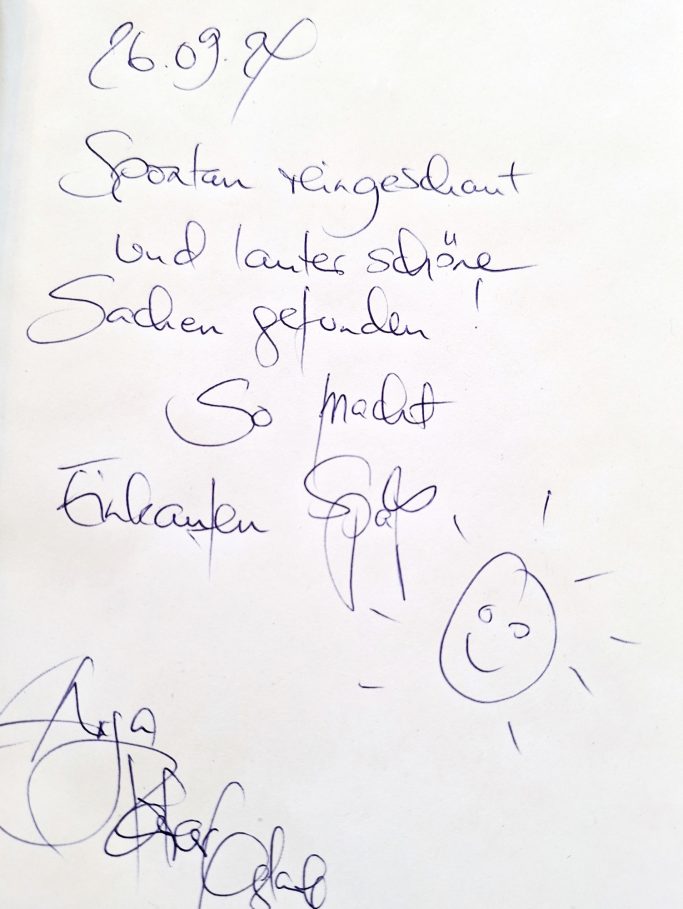 26.09.24
Spontan reingeschaut
und lauter schöne
Sachen gefunden !
So macht
Einkaufen Spaß
Anja